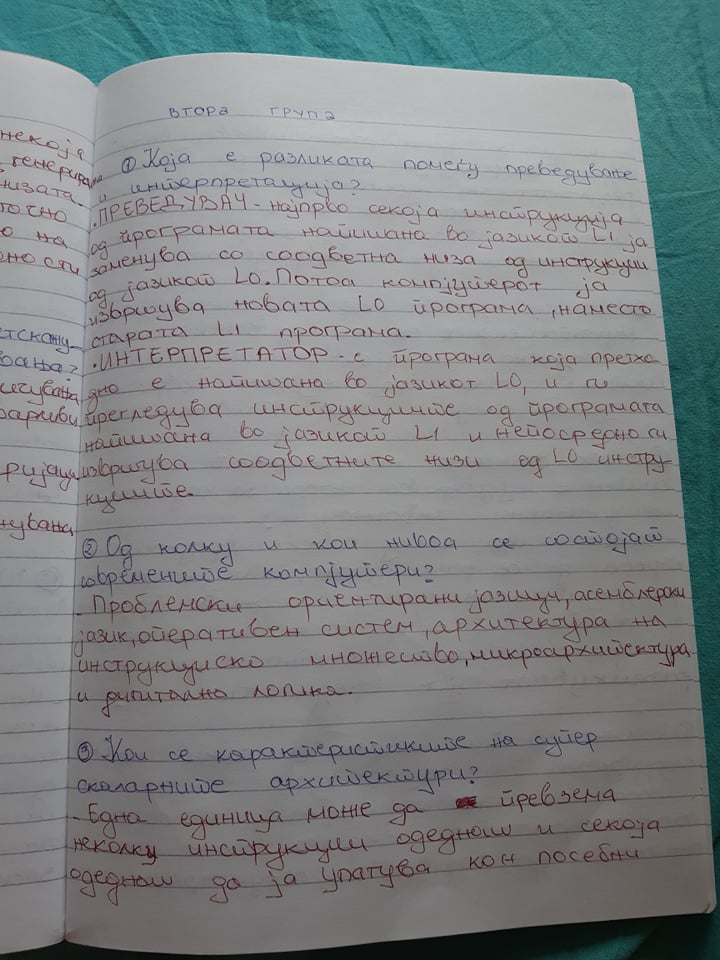 некоја
генерира
низата.
точно
о на
ности
етскану-
вања?
ичувања
варијви
рија
нувања
ВТОРА ГРУПА
① Која е разликата помеѓу преведување
и интерпретација?
.ПРЕВЕДУВАЧ - најпрво секоја инструкција
од програмата напишана во јазикот L1 ја
заменува со соодветна низа од инструкции
од јазикот L0. Потоа компјутерот ја
извршува новата L0 програма, наместо
старата L1 програма.
.ИНТЕРПРЕТАТОР - е програма која претхо
дно е напишана во јазикот L0, и ги
прегледува инструкциите од програмата
напишана во јазикот L1 и непосредно ги
извршува соодветните низи од L0 инстру-
кциите.
② Од колку и кои нивоа се состојат
современите компјутери?
- Проблемски ориентирани јазици, асемблерски
јазик, оперативен систем, архитектура на
инструкциско множество, микроархитектура
и дигитална логика.
③ Кои се карактеристиките на супер
скаларните архитектури?
- Една единица може да превзема
неколку инструкции одеднаш и секоја
одеднаш да ја упатува кон посебни